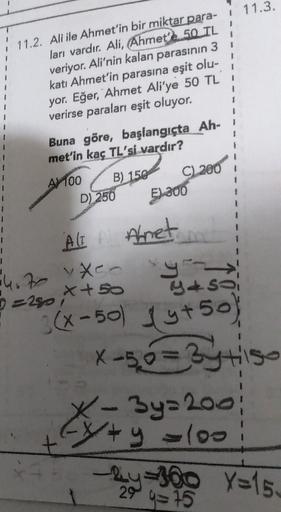 11.3.
11.2. Ali ile Ahmet'in bir miktar para-
ları vardır. Ali, Ahmet'e 50 TL
veriyor. Ali'nin kalan parasının 3
katı Ahmet'in parasına eşit olu-
yor. Eğer, Ahmet Ali'ye 50 TL
verirse paraları eşit oluyor.
Buna göre, başlangıçta Ah-
met'in kaç TL'si vardır?
A) 100 B) 150 C) 200
D) 250 E) 300
Ali Ahmet
x y
x + 50 y + 50
3(x - 50) 1(y + 50)
x - 50 = 3y + 150
x - 3y = 200
+ -x + y = 100
-2y = 300 y = 15
y = 75